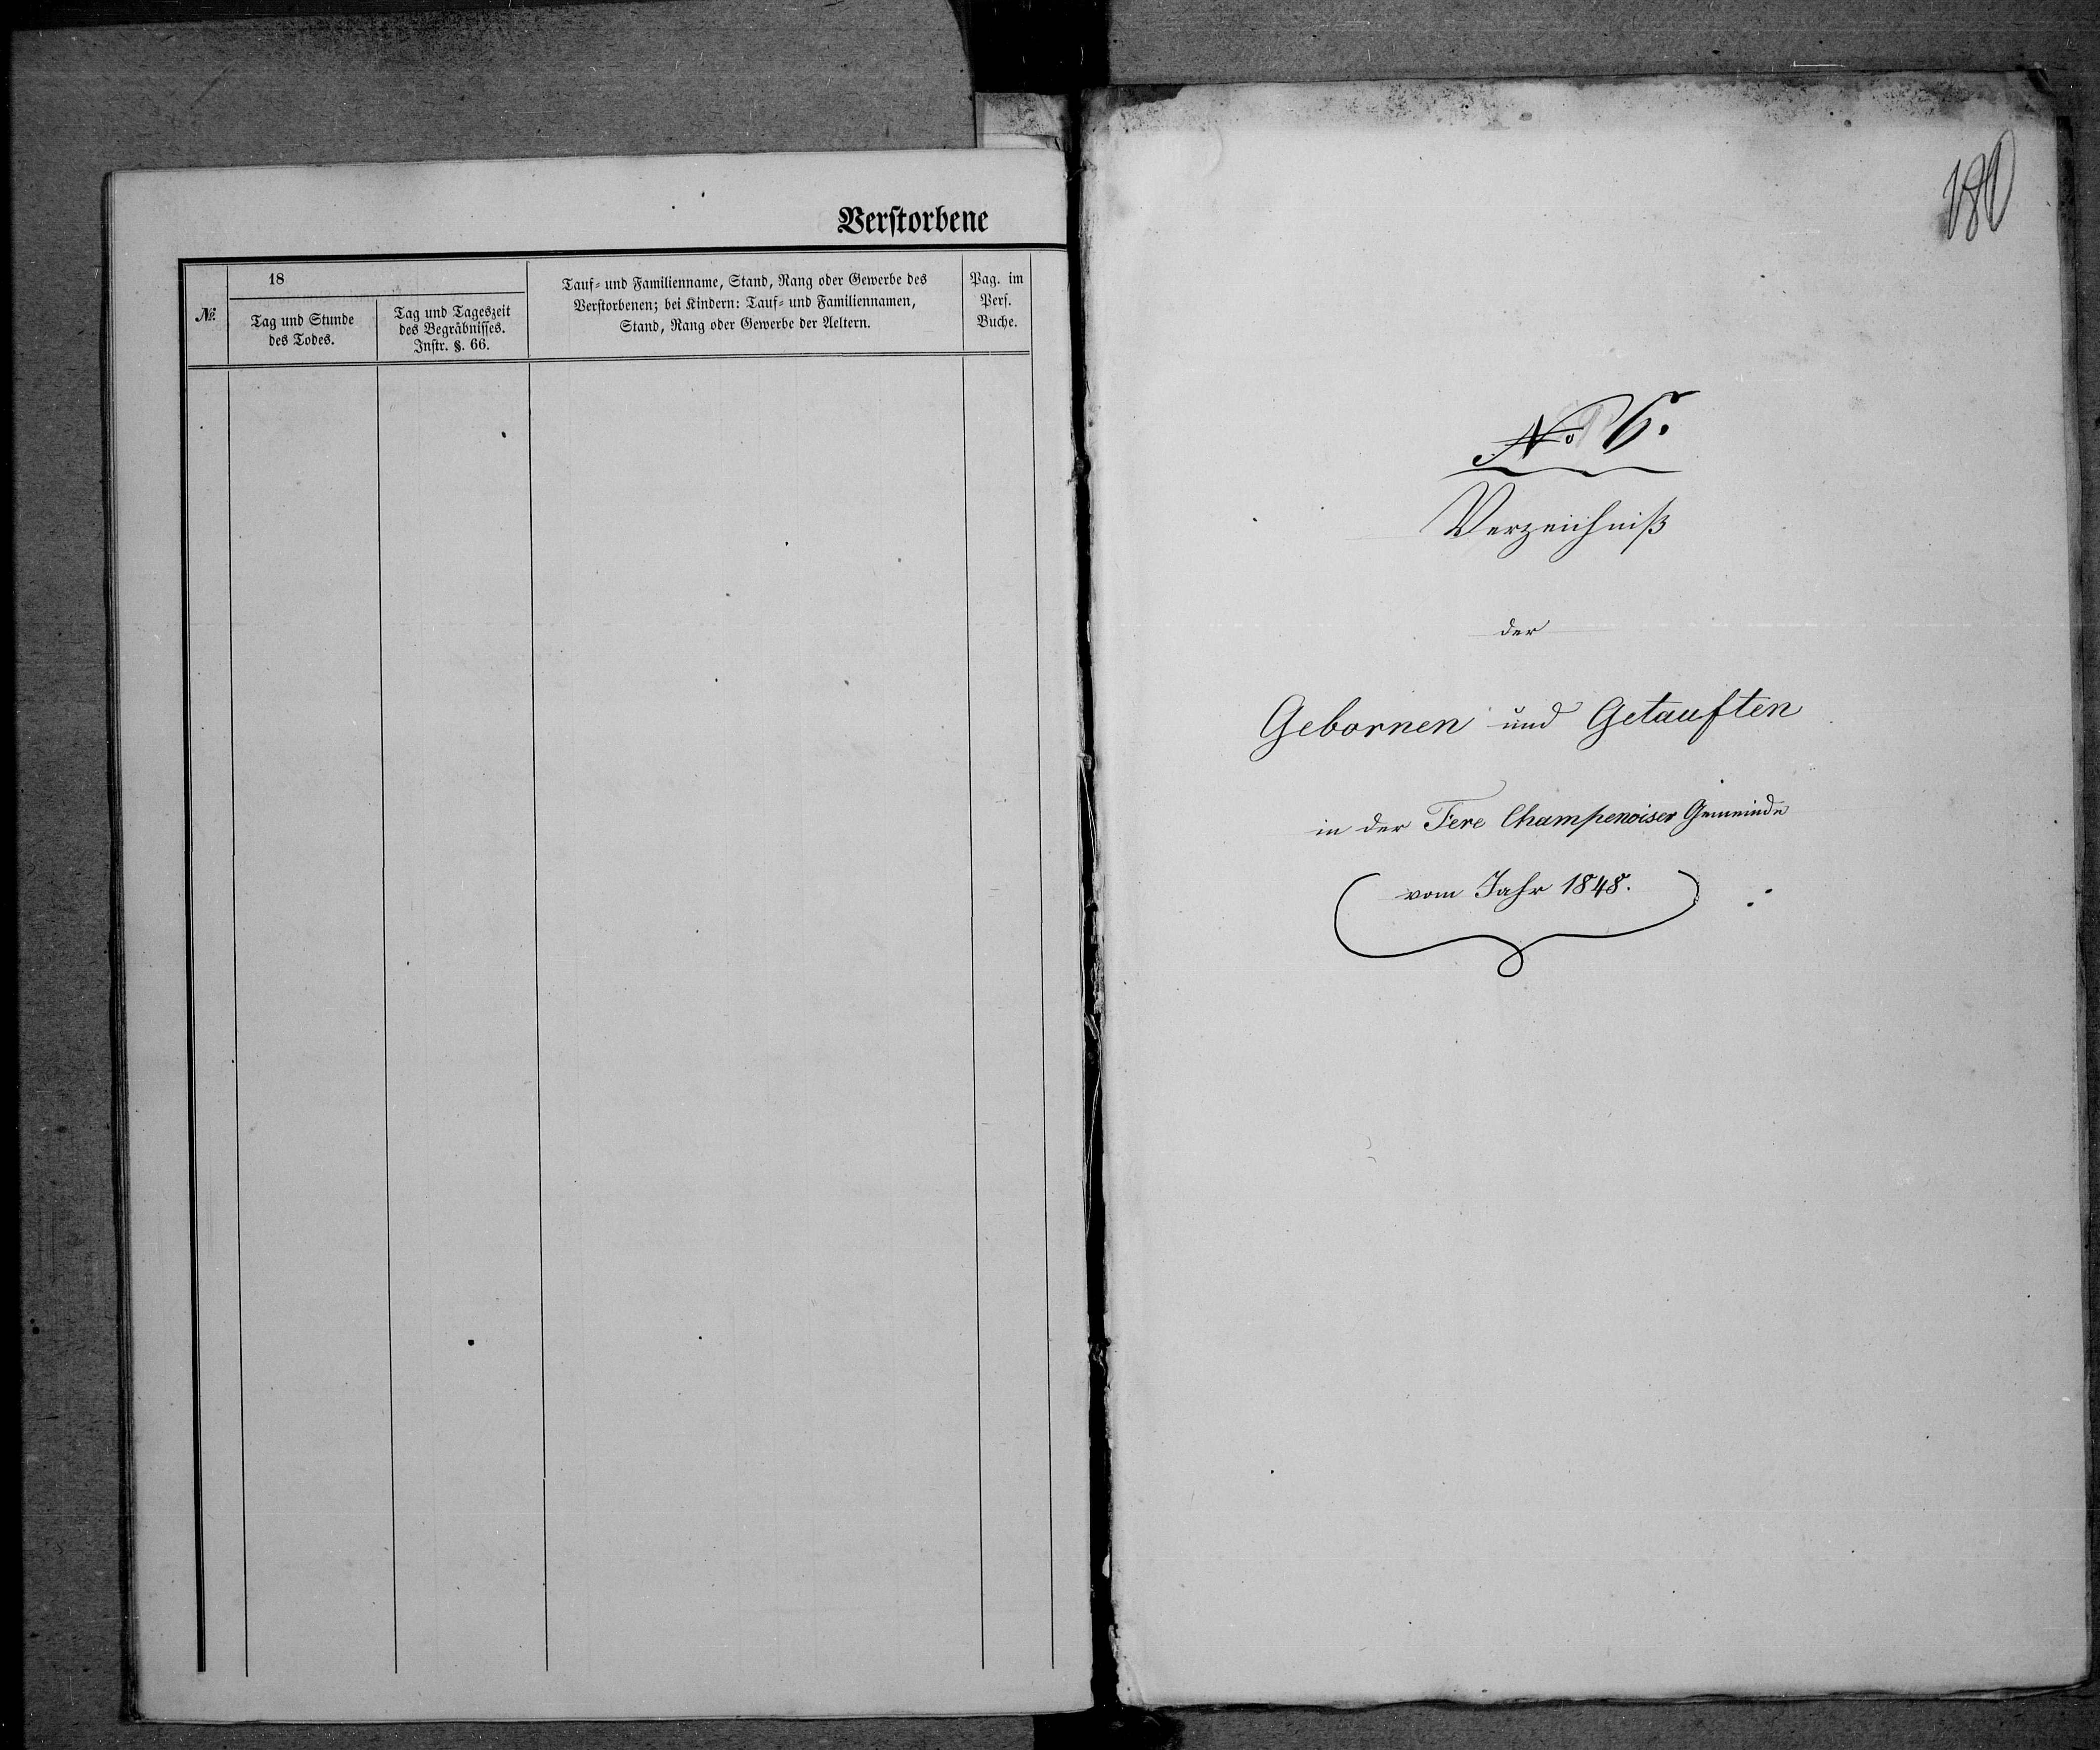 Verstorbene
№
18
Tag und Stunde
des Todes.
Tag und Tageszeit
des Begräbnisses.
Instr. §. 66.
Tauf- und Familienname, Stand, Rang oder Gewerbe des
Verstorbenen; bei Kindern: Tauf- und Familiennamen,
Stand, Rang oder Gewerbe der Aeltern.
Pag. im
Pers.
Buche.
180
No 6.
Verzeichniß
der
Gebornen und Getauften
in der Fere Champenoiser Gemeinde
vom Jahr 1848.